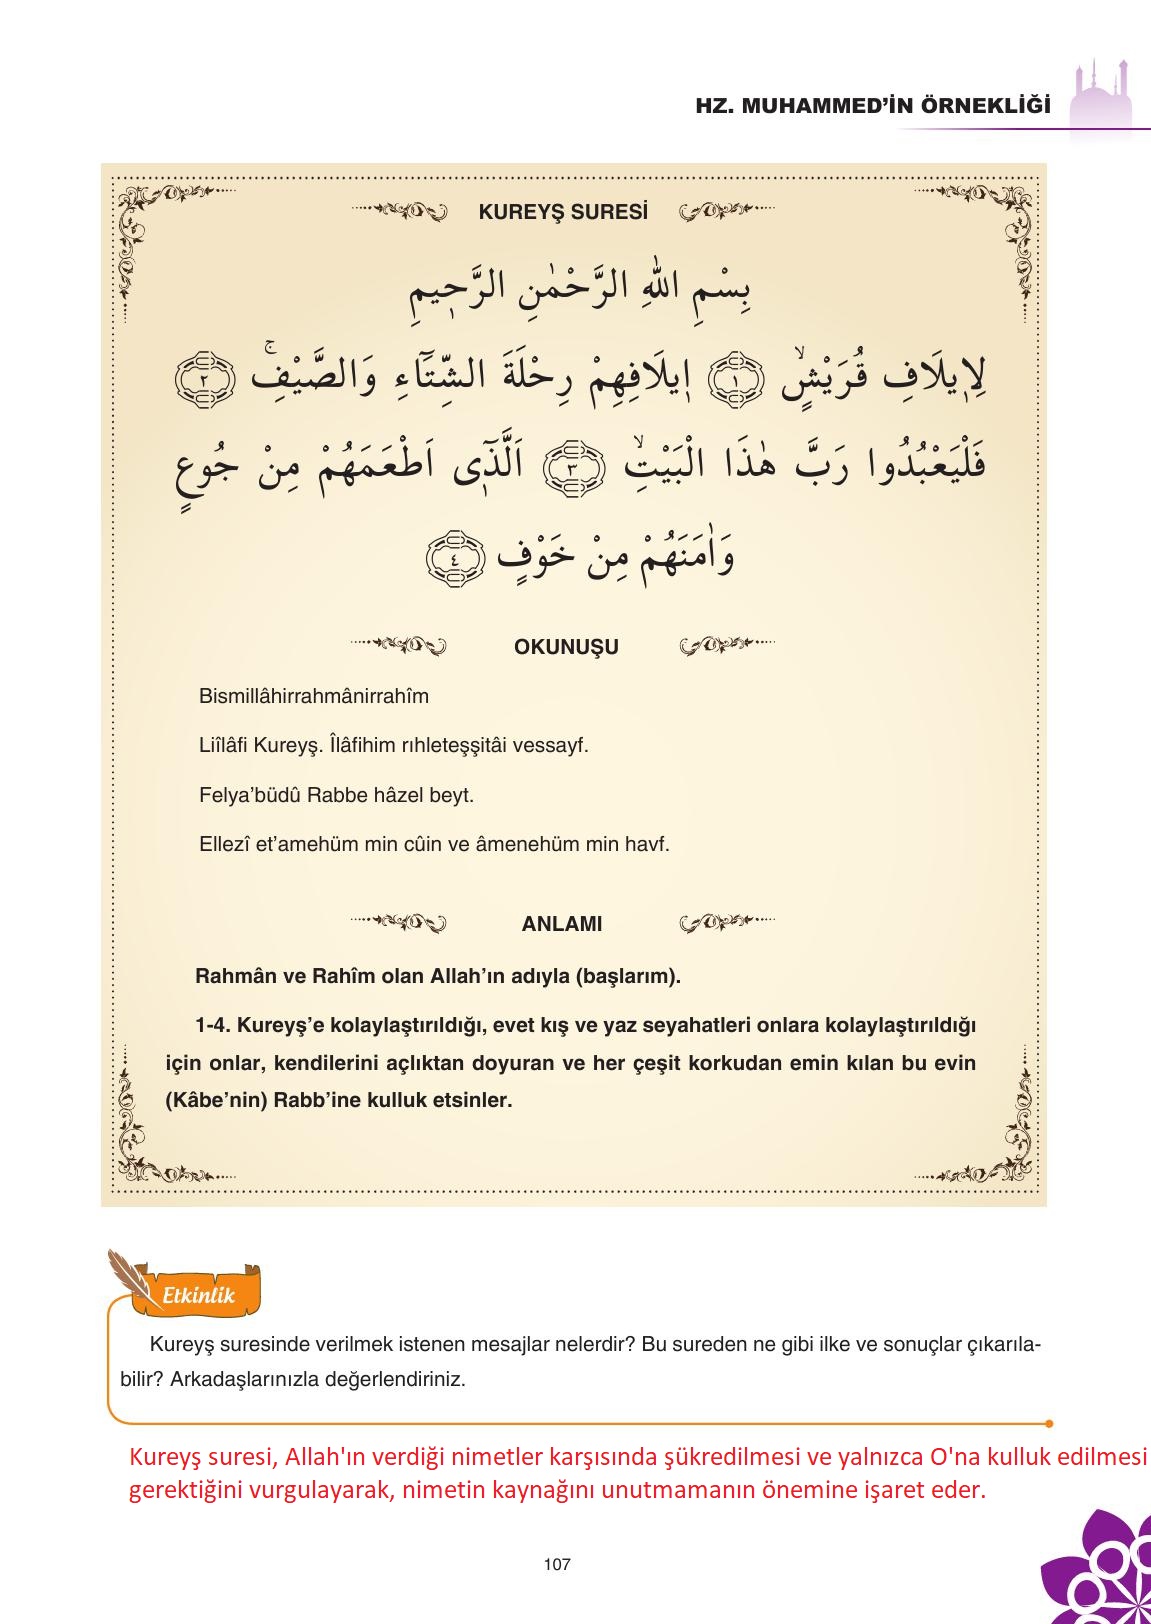 HZ. MUHAMMED’İN ÖRNEKLİĞİ
KUREYŞ SURESİ
بِسْمِ اللّٰهِ الرَّحْمٰنِ الرَّح۪يمِ
لِا۪يلَافِ قُرَيْشٍۙ ﴿١﴾ ا۪يلَافِهِمْ رِحْلَةَ الشِّتَٓاءِ وَالصَّيْفِۚ ﴿٢﴾
فَلْيَعْبُدُوا رَبَّ هٰذَا الْبَيْتِۙ ﴿٣﴾ اَلَّذ۪ٓى اَطْعَمَهُمْ مِنْ جُوعٍ
وَاٰمَنَهُمْ مِنْ خَوْفٍ ﴿٤﴾
OKUNUŞU
Bismillâhirrahmânirrahîm
Liîlâfi Kureyş. Îlâfihim rıhleteşşitâi vessayf.
Felya’büdû Rabbe hâzel beyt.
Ellezî et’amehüm min cûin ve âmenehüm min havf.
ANLAMI
Rahmân ve Rahîm olan Allah’ın adıyla (başlarım).
1-4. Kureyş’e kolaylaştırıldığı, evet kış ve yaz seyahatleri onlara kolaylaştırıldığı
için onlar, kendilerini açlıktan doyuran ve her çeşit korkudan emin kılan bu evin
(Kâbe’nin) Rabb’ine kulluk etsinler.
Etkinlik
Kureyş suresinde verilmek istenen mesajlar nelerdir? Bu sureden ne gibi ilke ve sonuçlar çıkarıla-
bilir? Arkadaşlarınızla değerlendiriniz.
Kureyş suresi, Allah'ın verdiği nimetler karşısında şükredilmesi ve yalnızca O'na kulluk edilmesi
gerektiğini vurgulayarak, nimetin kaynağını unutmamanın önemine işaret eder.
107